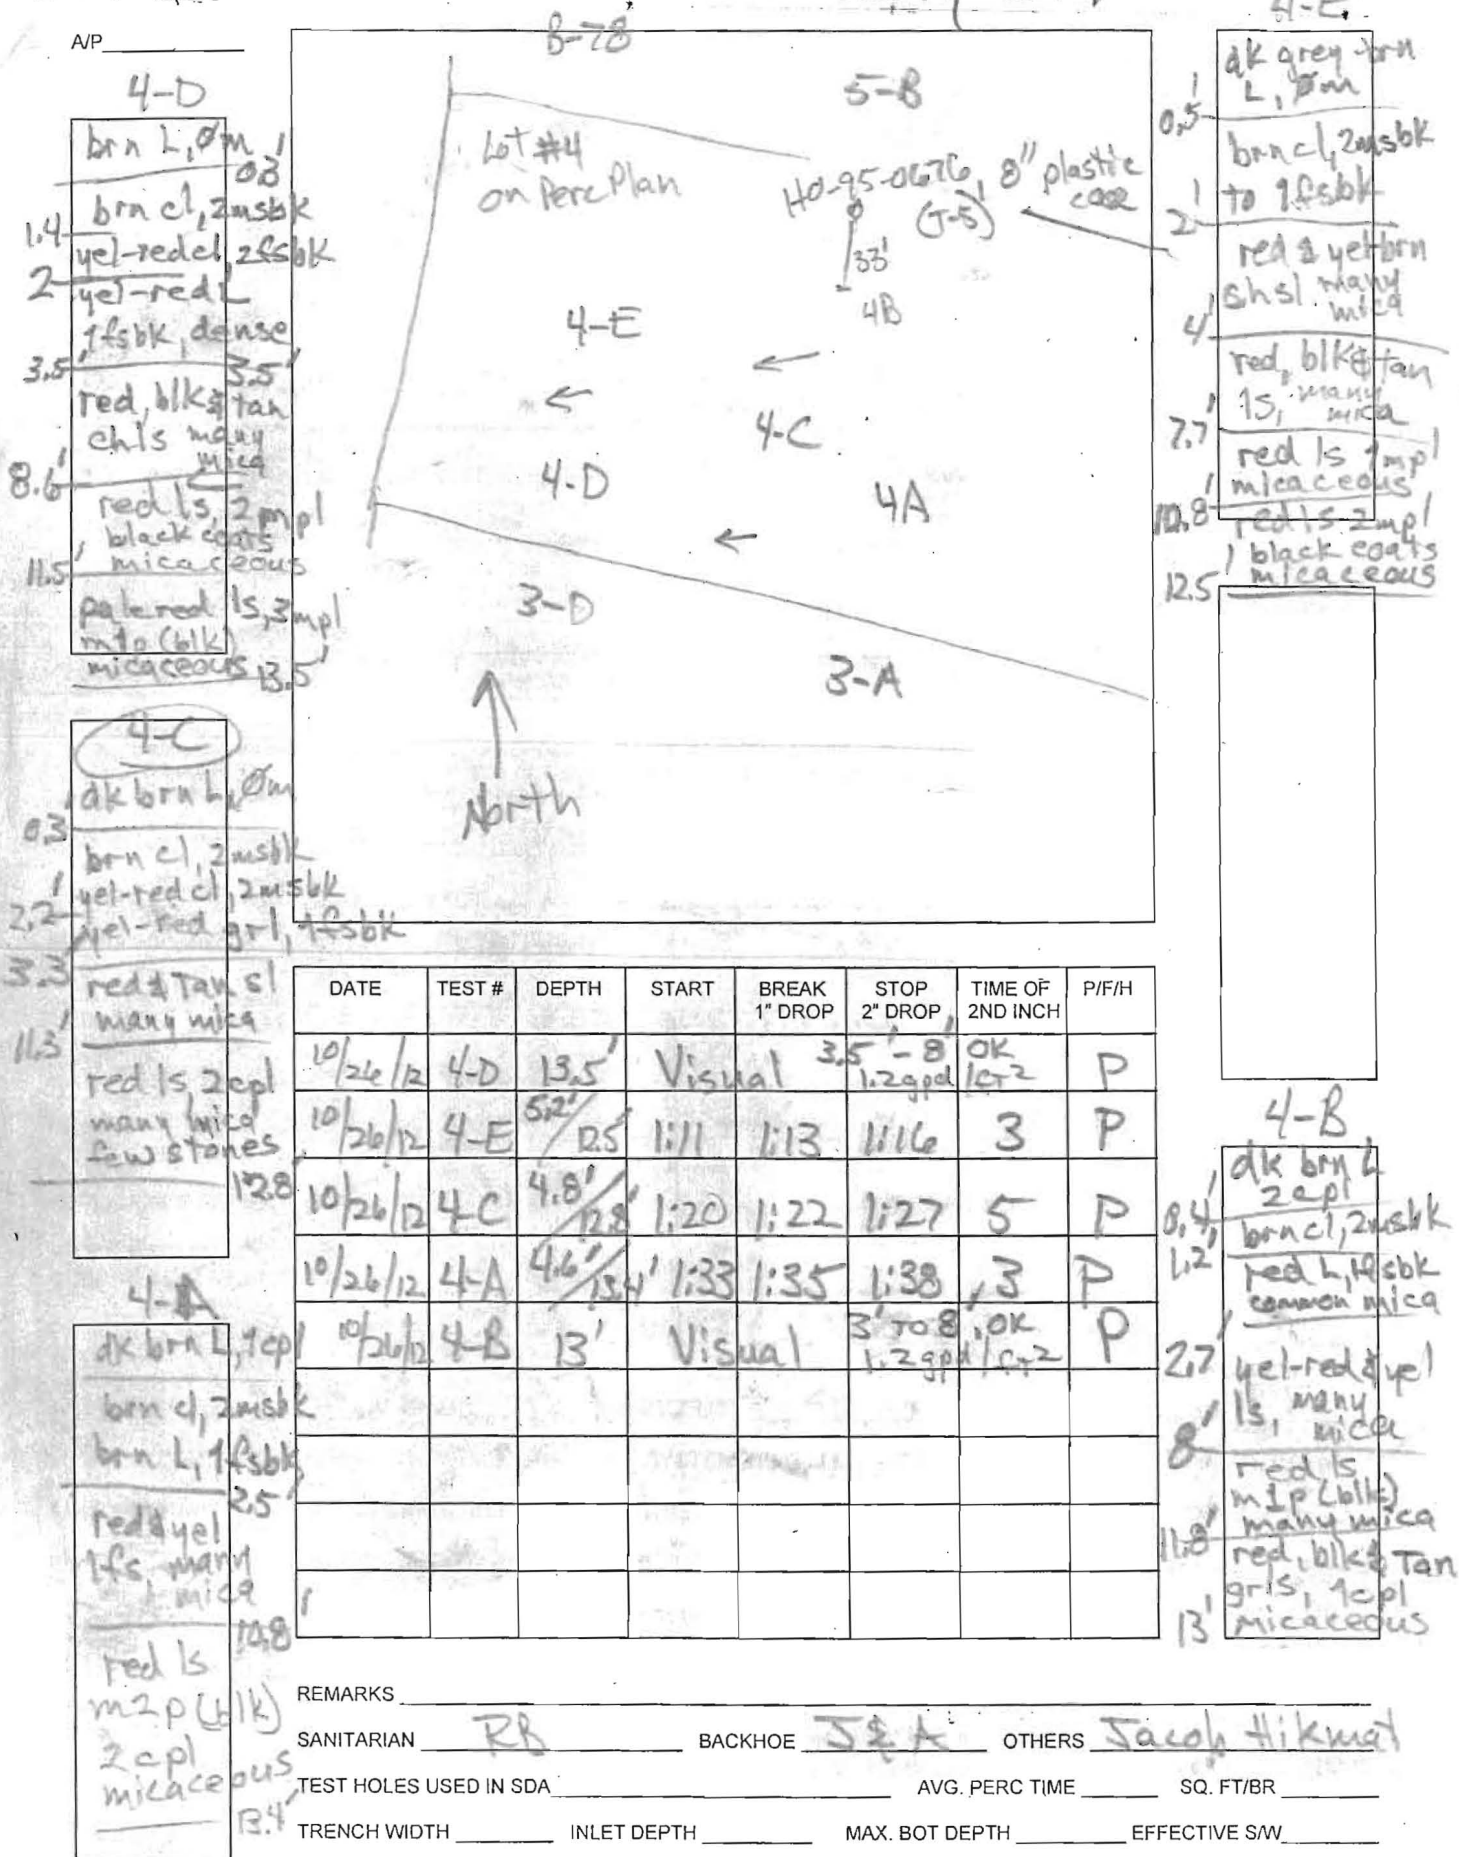 A/P
4-D
brn L, Øm
0.3'
brn cl, 2msbk
1.4'
yel-red cl, 2fsbk
2'
yel-red L
1fsbk, dense
3.5' 3.5'
red, blk & tan
chls many
mica
8.6'
red ls, 2mpl
black coats
micaceous
11.5'
pale red ls, 3mpl
m1p (blk)
micaceous 13.5'
4-C
dk brn L, Øm
0.3'
brn cl, 2msbk
yel-red cl, 2msbk
2.2'
yel-red grl, 1fsbk
3.3'
red & Tan sl
many mica
11.3'
red ls, 2cpl
many mica
few stones
12.8'
4-A
dk brn L, 1cpl
brn cl, 2msbk
brn L, 1fsbk
2.5'
red & yel
lfs, many
mica
10.8'
red ls
m2p (blk)
2cpl
micaceous
13.4'
B-78
5-B
Lot #4
on Perc Plan
HO-95-0676, 8" plastic
case
(J-5)
33'
4B
4-E
4-C
4-D
4A
3-D
3-A
North
4-E
dk grey-brn
L, Øm
0.5'
brn cl, 2msbk
to 1fsbk
2'
red & yel-brn
shsl many
mica
4'
red, blk & tan
ls, many
mica
7.7'
red ls 1mpl
micaceous
10.8'
red ls 2mpl
black coats
micaceous
12.5'
4-B
dk brn L
2cpl
0.4'
brn cl, 2msbk
1.2'
red L, 1fsbk
common mica
2.7'
yel-red & yel
ls, many
mica
8'
red ls
m1p (blk)
many mica
11.8'
red, blk & Tan
grls, 1cpl
micaceous
13'
DATE TEST # DEPTH START BREAK 1" DROP STOP 2" DROP TIME OF 2ND INCH P/F/H
10/26/12 4-D 13.5' Visual 3.5'-8' OK 1.2gpd/FT2 P
10/26/12 4-E 5.2'/12.5' 1:11 1:13 1:16 3 P
10/26/12 4-C 4.8'/12.8' 1:20 1:22 1:27 5 P
10/26/12 4-A 4.6'/13.4' 1:33 1:35 1:38 3 P
10/26/12 4-B 13' Visual 3' TO 8', OK 1.2gpd/FT2 P
REMARKS
SANITARIAN RB BACKHOE J & A OTHERS Jacob Hikmat
TEST HOLES USED IN SDA AVG. PERC TIME SQ. FT/BR
TRENCH WIDTH INLET DEPTH MAX. BOT DEPTH EFFECTIVE S/W